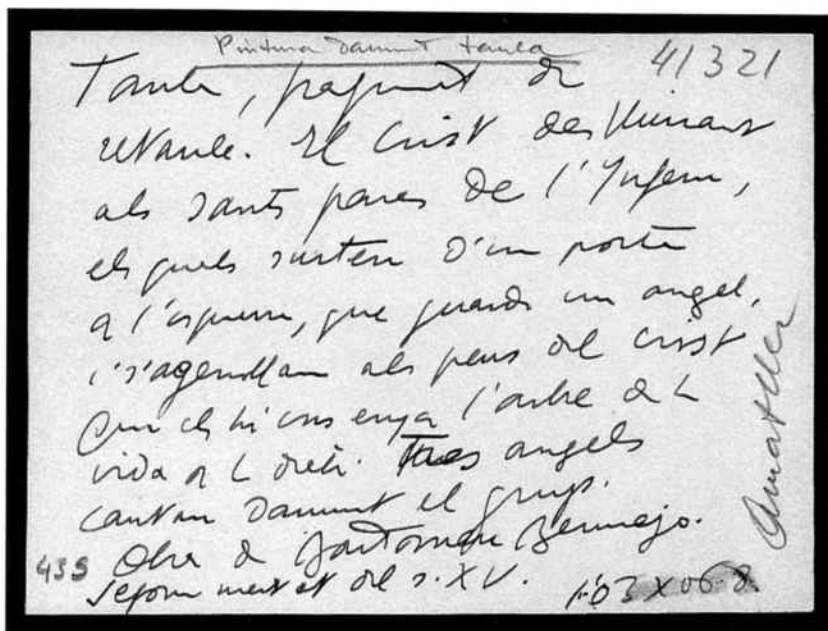 Pintura damunt taula
41321
Taula, fragment de
retaule. El Crist deslliurant
als sants pares de l'Infern,
els quals surten d'un porta
a l'esquerra, que guarda un angel,
i s'agenollam als peus del Crist
que els hi ensenya l'arbre de la
vida a la dreta. Tres angels
cantan damunt el grup.
Obra de Bartomeu Bermejo.
Segona meitat del s. XV.
435
1'03 x 06-8
Amatller